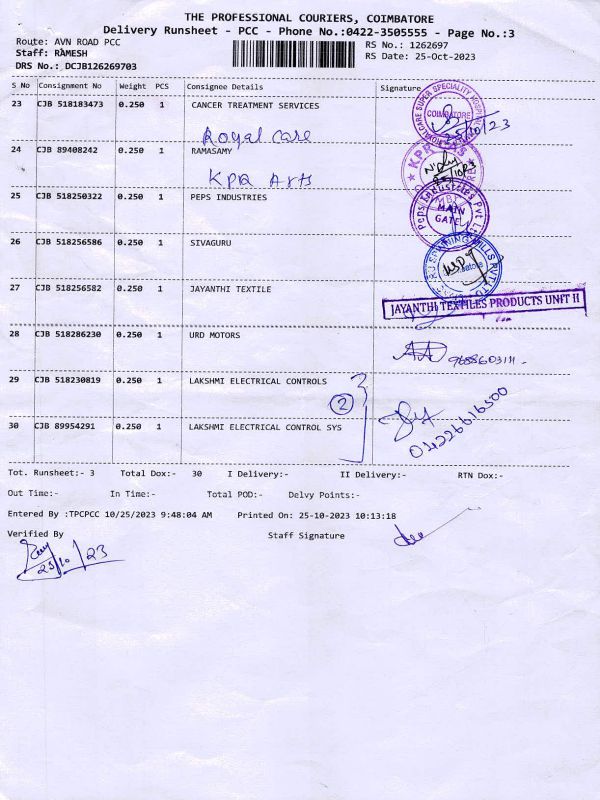 THE PROFESSIONAL COURIERS, COIMBATORE
Delivery Runsheet - PCC - Phone No.:0422-3505555 - Page No.:3
Route: AVN ROAD PCC
RS No.: 1262697
Staff: RAMESH
RS Date: 25-Oct-2023
DRS No.: DCJB126269703
S No Consignment No Weight PCS Consignee Details Signature
23 CJB 518183473 0.250 1 CANCER TREATMENT SERVICES
COIMBATORE
25/10/23
Royal care
24 CJB 89408242 0.250 1 RAMASAMY
KPR Arts
25 CJB 518250322 0.250 1 PEPS INDUSTRIES
Peps Industries Pvt Ltd
MAIN
GATE
26 CJB 518256586 0.250 1 SIVAGURU
27 CJB 518256582 0.250 1 JAYANTHI TEXTILE
JAYANTHI TEXTILES PRODUCTS UNIT II
28 CJB 518286230 0.250 1 URD MOTORS
9688603111
29 CJB 518230819 0.250 1 LAKSHMI ELECTRICAL CONTROLS
2
04226616500
30 CJB 89954291 0.250 1 LAKSHMI ELECTRICAL CONTROL SYS
Tot. Runsheet:- 3 Total Dox:- 30 I Delivery:- II Delivery:- RTN Dox:-
Out Time:- In Time:- Total POD:- Delvy Points:-
Entered By :TPCPCC 10/25/2023 9:48:04 AM Printed On: 25-10-2023 10:13:18
Verified By Staff Signature
25/10/23